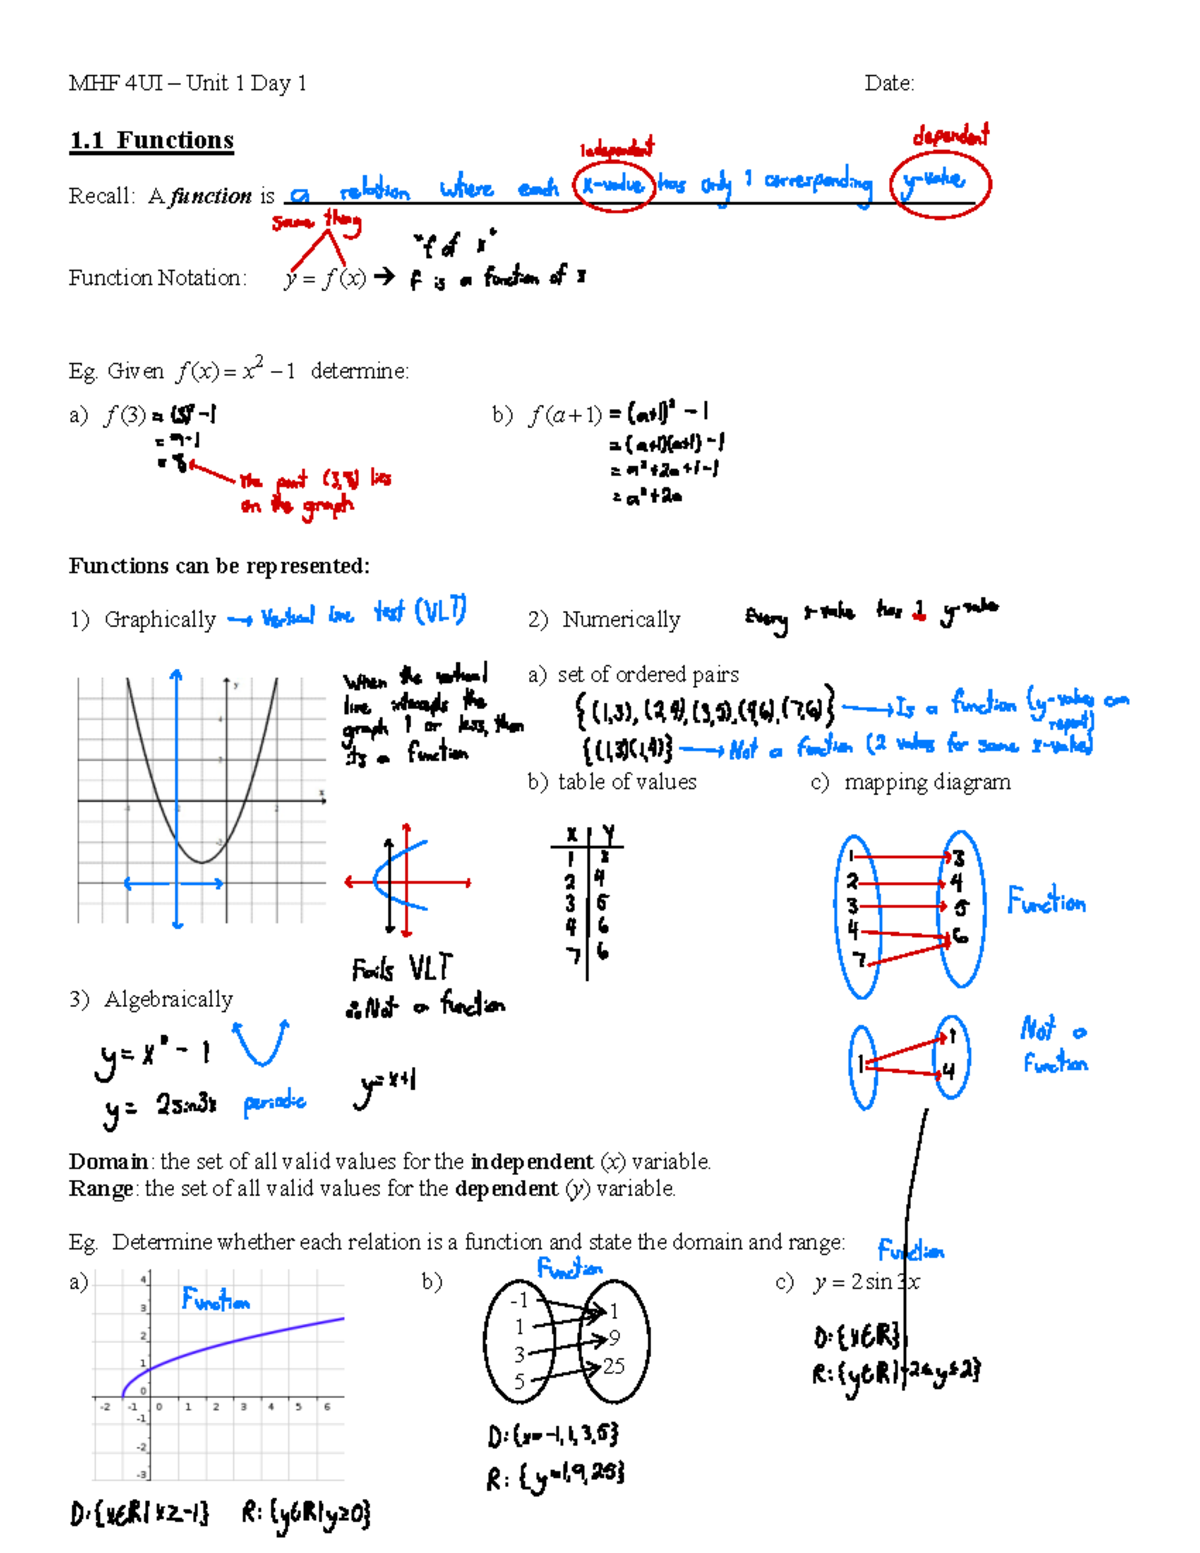 MHF 4UI – Unit 1 Day 1 Date:
1.1 Functions
independent dependent
Recall: A function is a relation where each x-value has only 1 corresponding y-value
Same thing
"f of x"
Function Notation: y = f(x) → f is a function of x
Eg. Given f(x) = x² − 1 determine:
a) f(3) = (3)² − 1 b) f(a+1) = (a+1)² − 1
= 9 − 1 = (a+1)(a+1) − 1
= 8 = a² + 2a + 1 − 1
the point (3,8) lies = a² + 2a
on the graph
Functions can be represented:
1) Graphically → Vertical line test (VLT) 2) Numerically Every x-value has 1 y-value
When the vertical
line intercepts the
graph 1 or less, then
its a function
a) set of ordered pairs
{(1,3), (2,4), (3,5), (4,6), (7,6)} → Is a function (y-values can
repeat)
{(1,3)(1,4)} → Not a function (2 values for same x-value)
b) table of values c) mapping diagram
x y
1 3
2 4
3 5
4 6
7 6
1 3
2 4
3 5
4 6
7
Function
Fails VLT
∴ Not a function
1 1
4
Not a
function
3) Algebraically
y = x² − 1
y = 2sin3x periodic
y = x+1
Domain: the set of all valid values for the independent (x) variable.
Range: the set of all valid values for the dependent (y) variable.
Eg. Determine whether each relation is a function and state the domain and range:
a) Function
4
3
2
1
0
-2 -1 0 1 2 3 4 5 6
-1
-2
-3
D:{x∈R|x≥-1} R:{y∈R|y≥0}
b) Function
-1 1
1 9
3 25
5
D:{x=-1,1,3,5}
R:{y=1,9,25}
Function
c) y = 2 sin 3x
D:{x∈R}
R:{y∈R|-2≤y≤2}